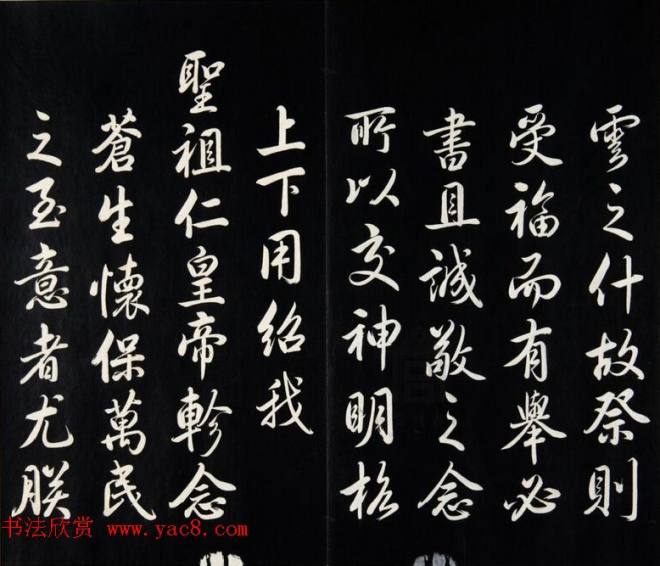 雲之什故祭則
受福而有舉必
書且誠敬之念
所以交神明格
上下用紹我
聖祖仁皇帝軫念
蒼生懷保萬民
之至意者尤朕
书法欣赏 www.yac8.com